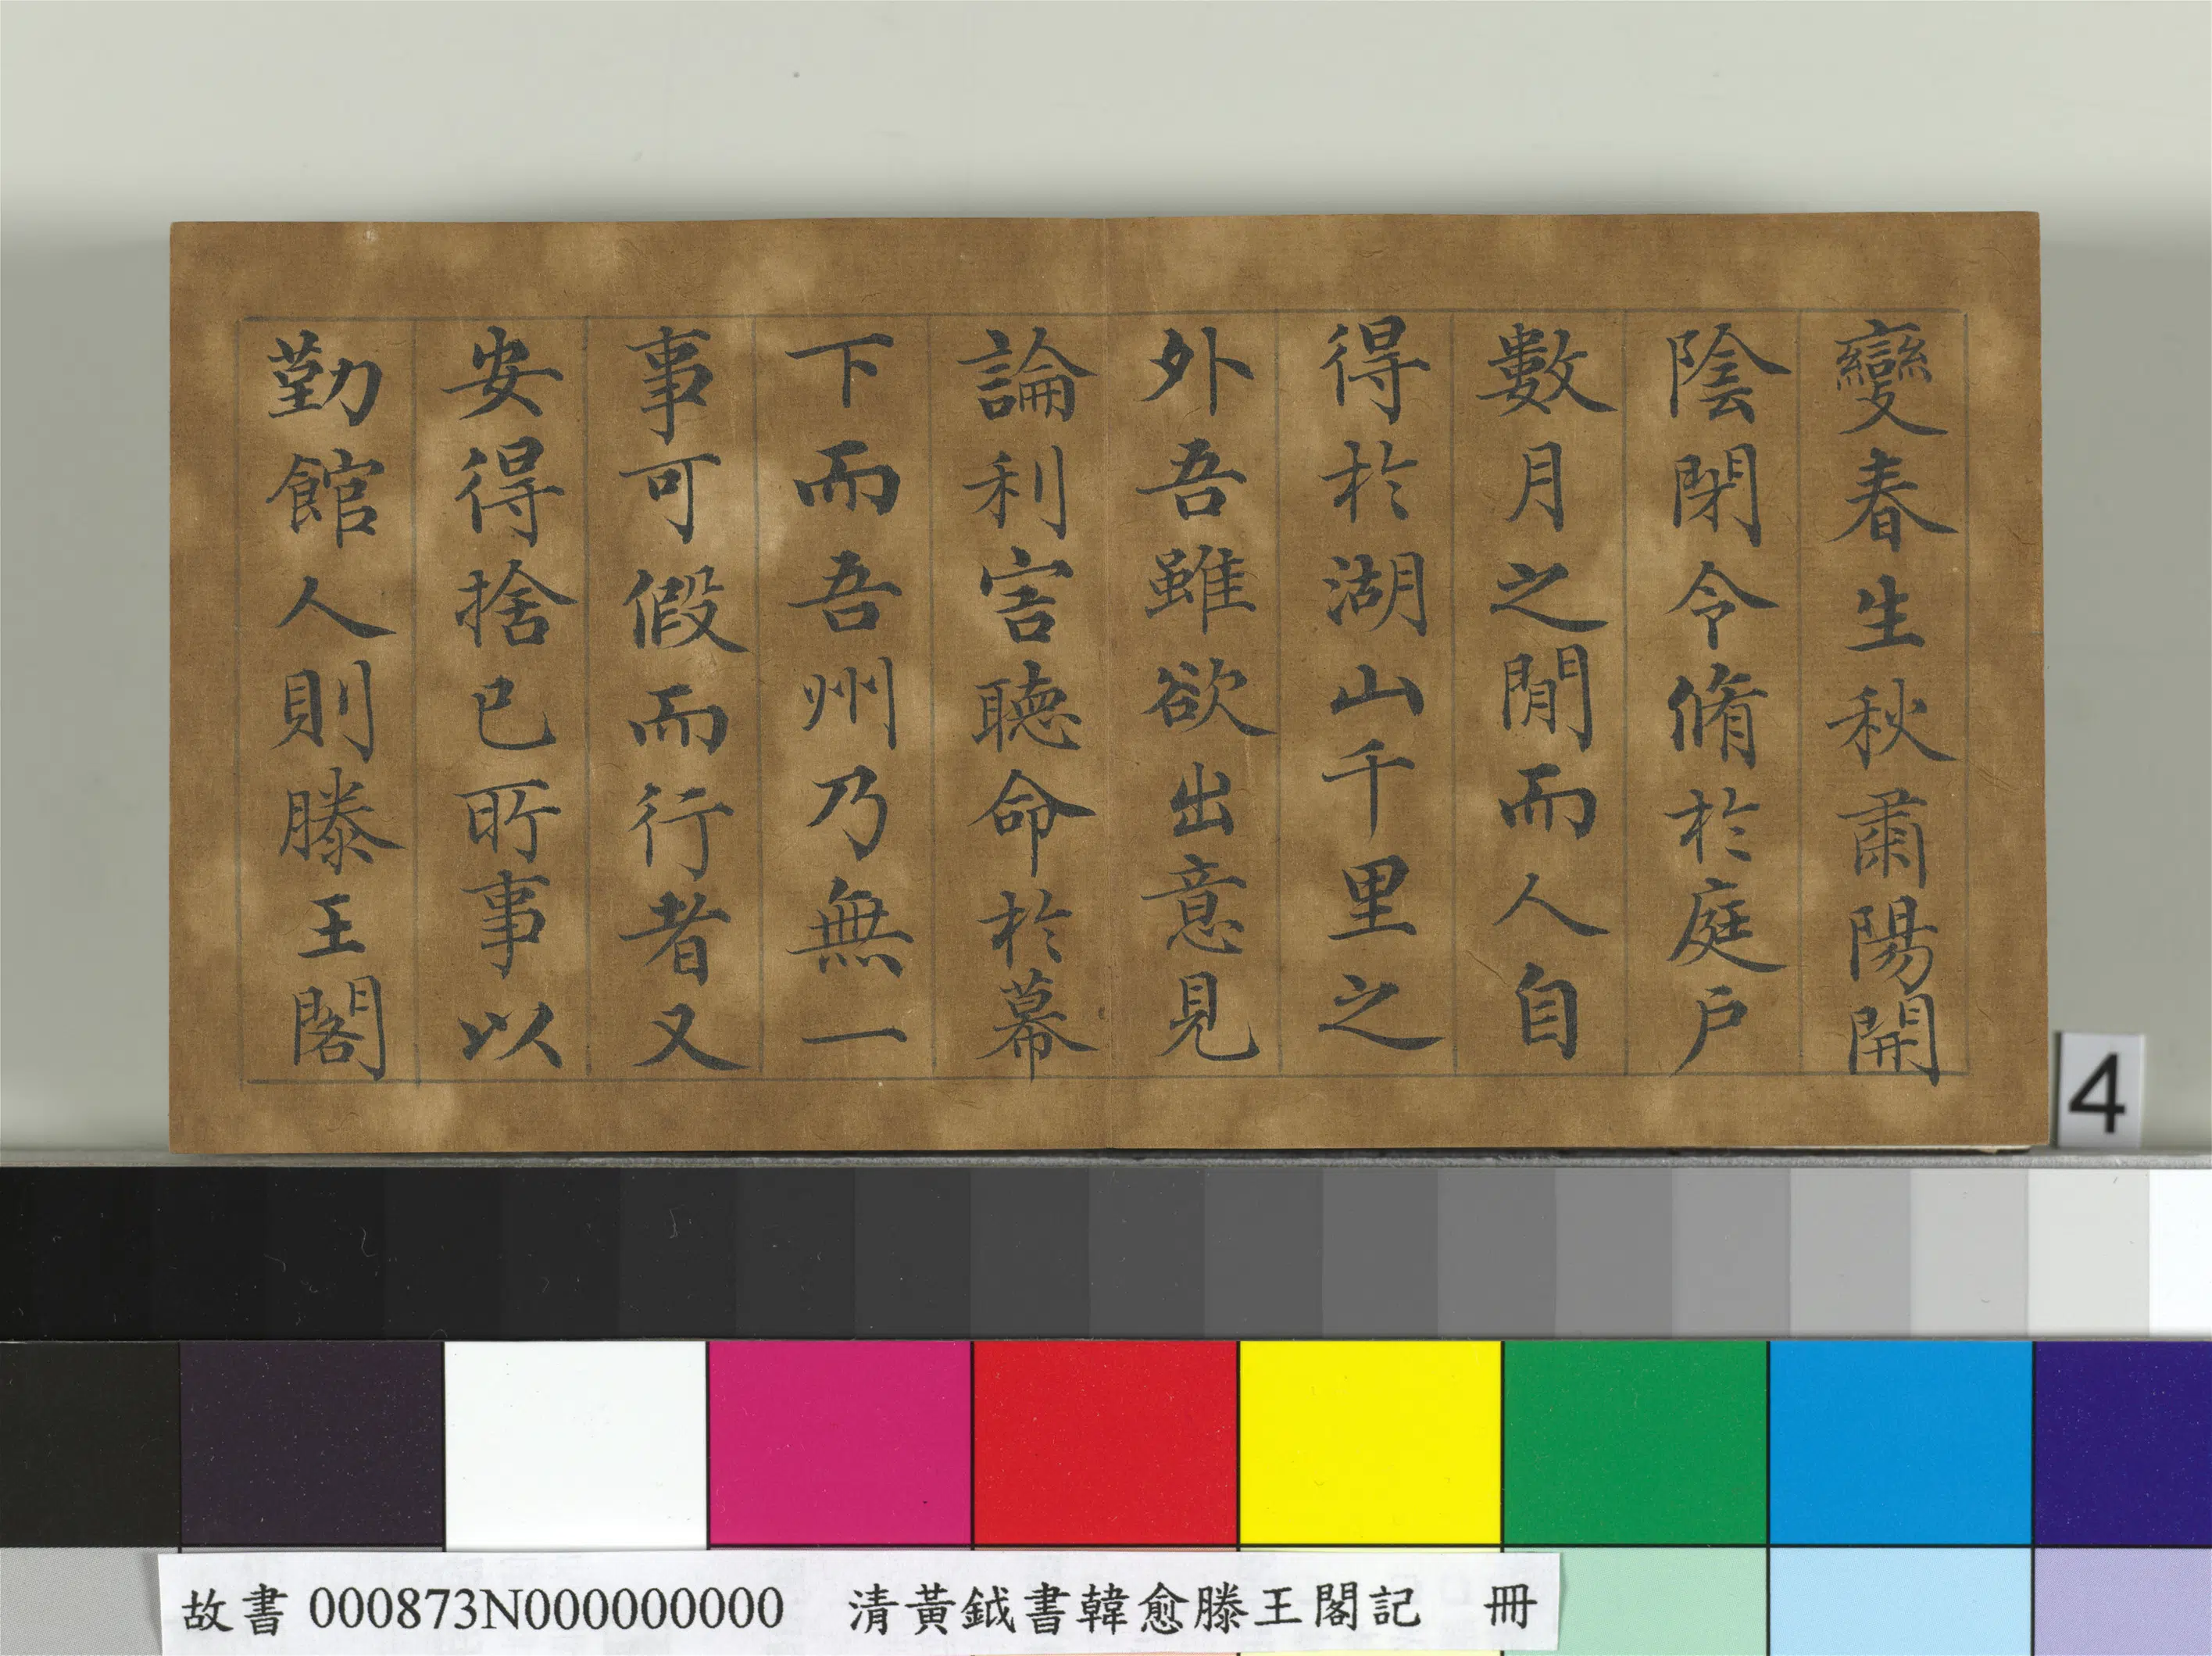 變春生秋肅陽開
陰閉令脩於庭戶
數月之閒而人自
得於湖山千里之
外吾雖欲出意見
論利害聽命於幕
下而吾州乃無一
事可假而行者又
安得捨已所事以
勤館人則滕王閣
4
故書 000873N000000000 清黃鉞書韓愈滕王閣記 冊